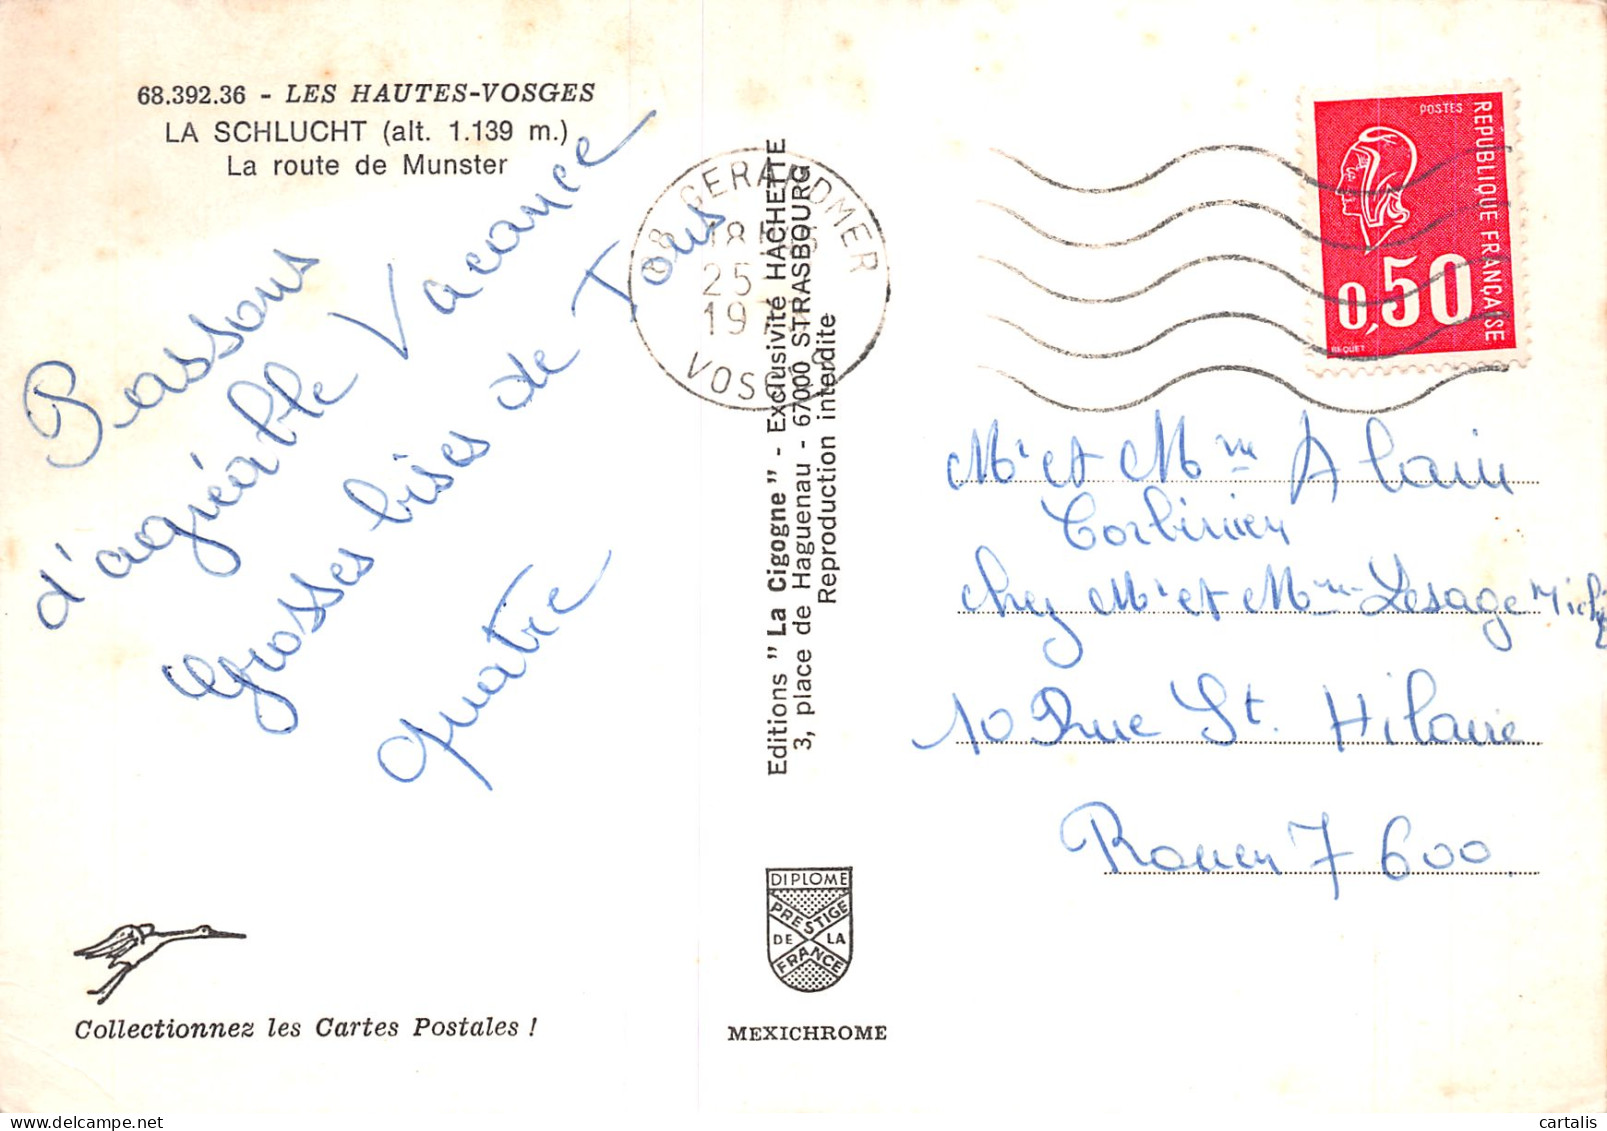 68.392.36 - LES HAUTES-VOSGES
LA SCHLUCHT (alt. 1.139 m.)
La route de Munster
Passons
d'agréable Vacance
Grosses bises de Tous
quatre
Collectionnez les Cartes Postales !
Editions "La Cigogne" - Exclusivité HACHETTE
3, place de Haguenau - 67000 STRASBOURG
Reproduction interdite
88 GERARDMER
18H
25
19
VOSGES
DIPLOME
PRESTIGE
DE LA
FRANCE
MEXICHROME
POSTES
REPUBLIQUE FRANÇAISE
0,50
BEQUET
Mr et Mme Alain
Corbinien
chez Mr et Mme Lesage
10 Rue St. Hilaire
Rouen 7600
cartalis